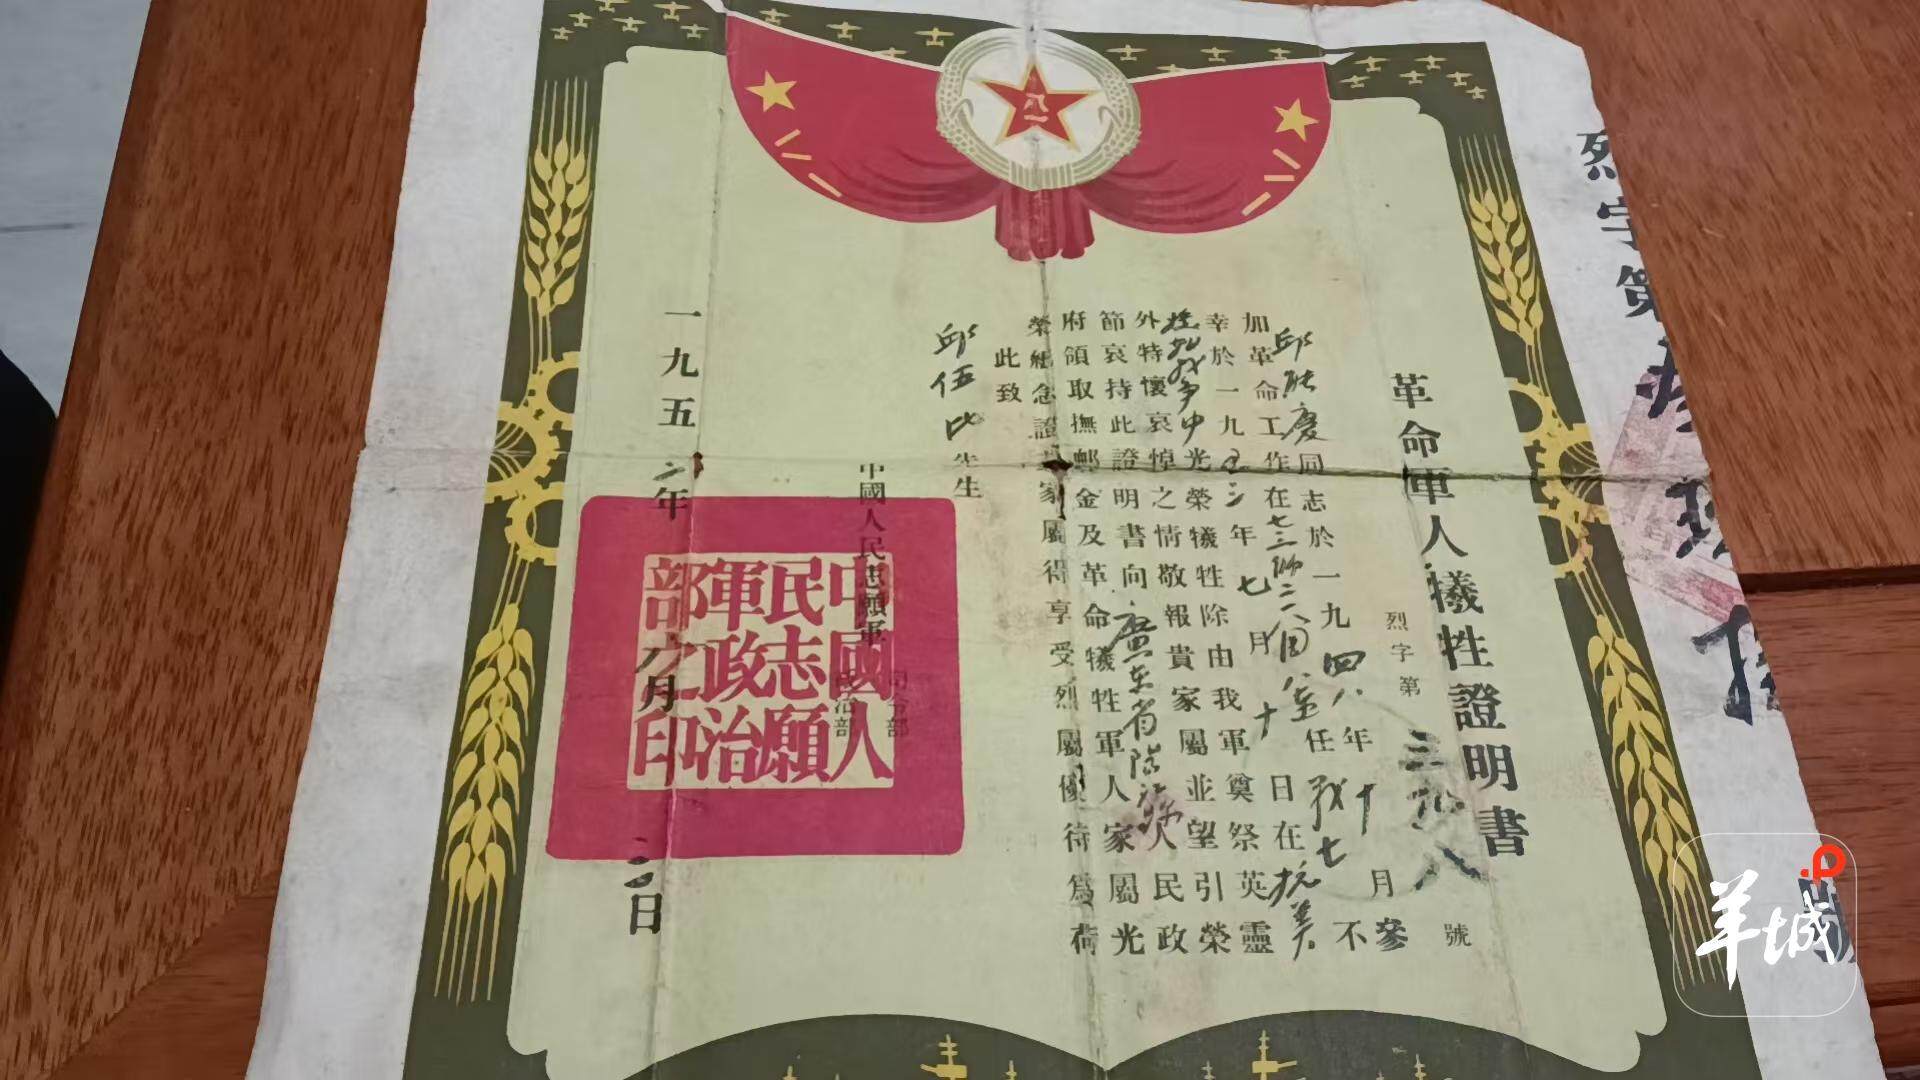 八一
革命軍人犧牲證明書
烈字第三九八號
邱 慶同志於一九四八年十月參
加革命工作在七三師二八團 任 不
幸於一九五二年七月十七日在抗美
戰爭中光榮犧牲除由我軍奠祭英靈
外特懷哀悼之情敬報貴家屬並望引榮
節哀持此證明書向廣東省 人民政
府領取撫卹金及革命犧牲軍人家屬光
榮紀念證 家屬得享受烈屬優待為荷
此致
邱伍 先生
中國人民志願軍
司令部
政治部
一九五二年八月 日
中國人
民志願
軍政治
部之印
烈字第
羊城